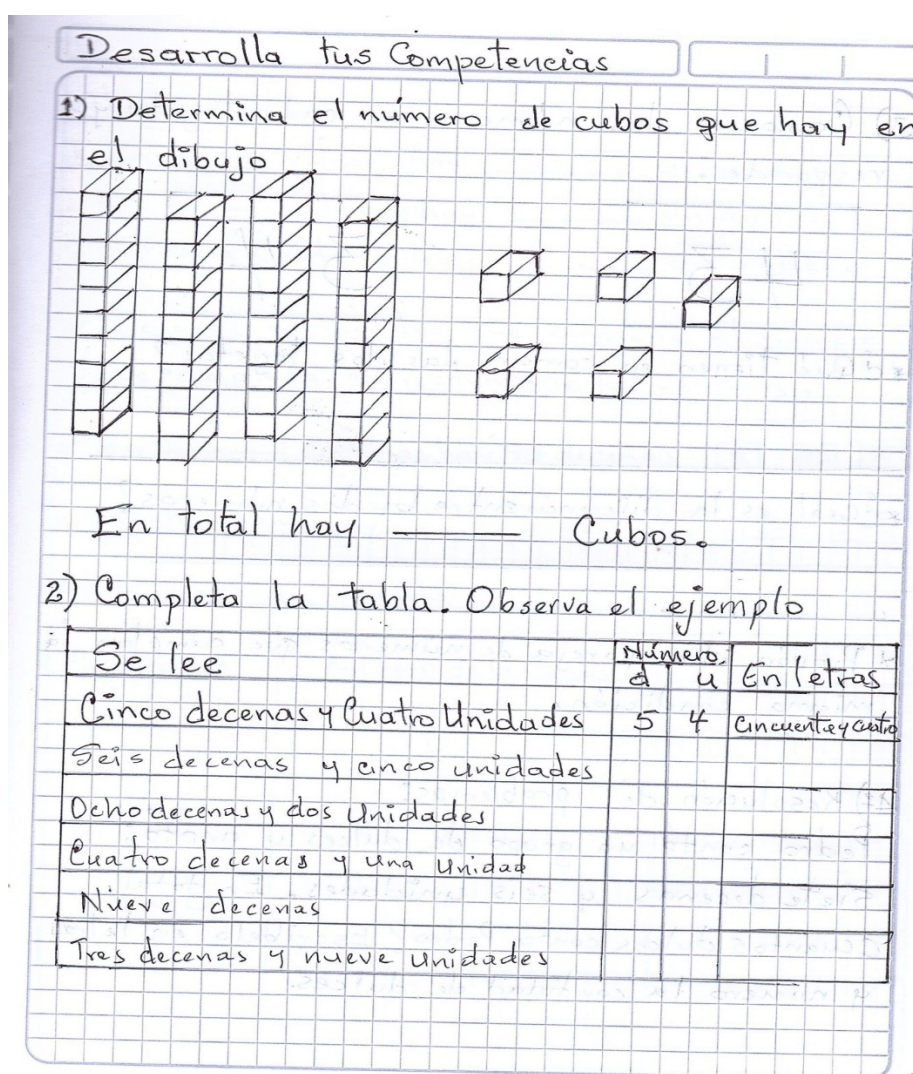 Desarrolla tus Competencias
1) Determina el número de cubos que hay en
el dibujo
En total hay ______ Cubos.
2) Completa la tabla. Observa el ejemplo
Se lee Número. En letras
d u
Cinco decenas y Cuatro Unidades 5 4 Cincuenta y cuatro
Seis decenas y cinco unidades
Ocho decenas y dos Unidades
Cuatro decenas y una unidad
Nueve decenas
Tres decenas y nueve unidades